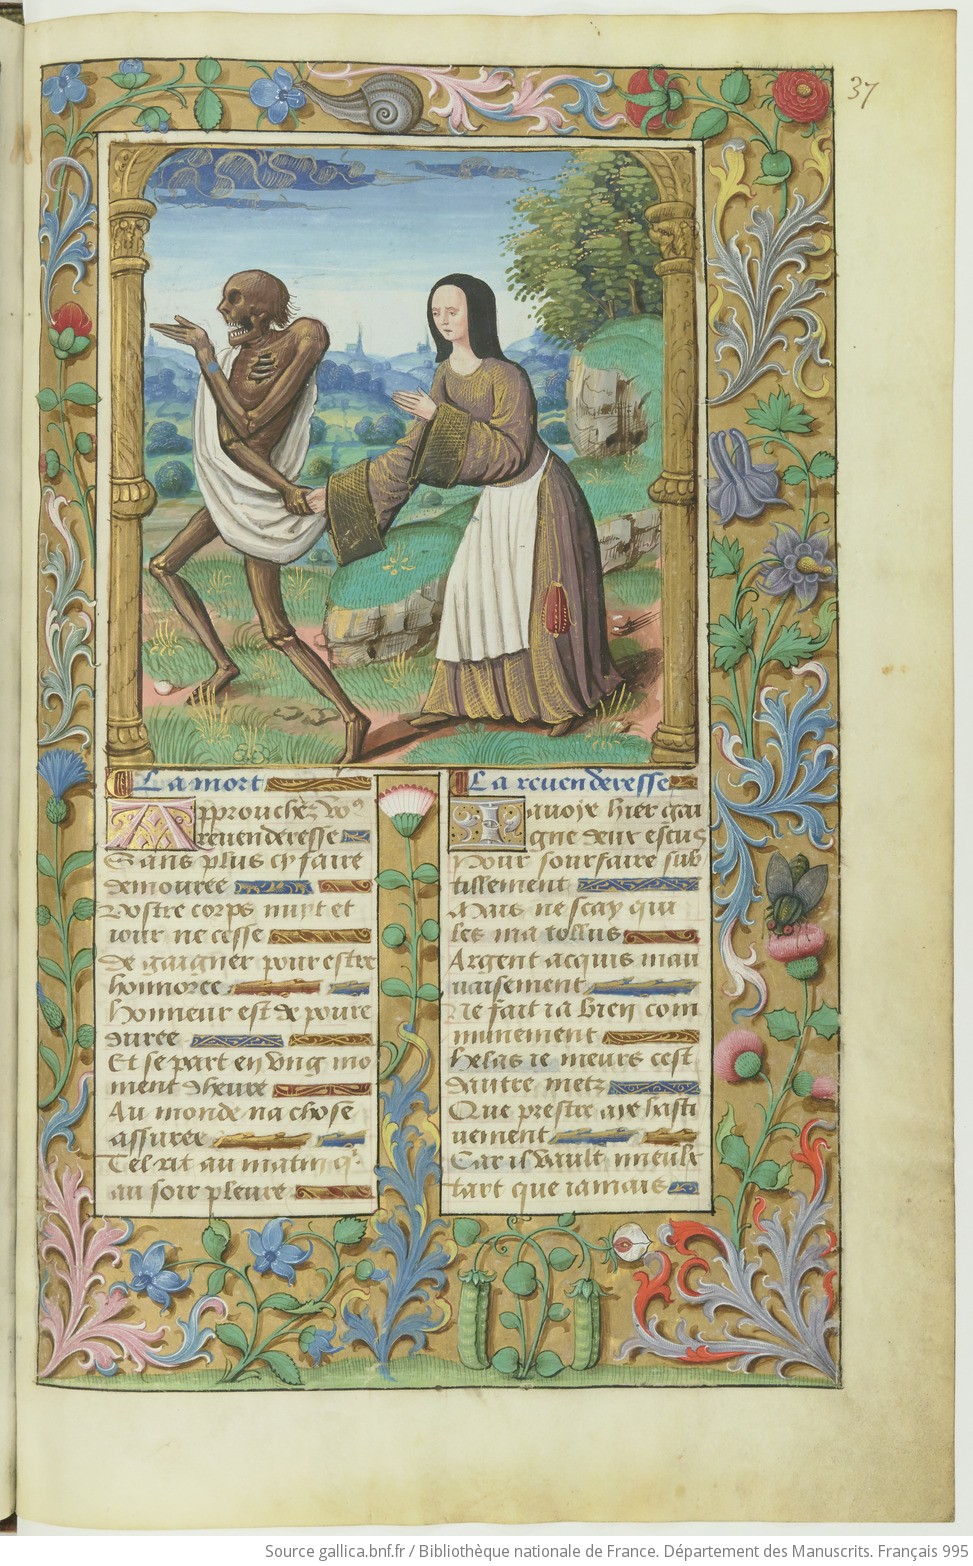 37
La mort
Approuchez vo9
reuenderesse
Sans plus cy faire
demouree
Vostre corps nuyt et
iour ne cesse
de gaigner pour estre
honnoree
honneur est de poure
duree
Et se part en vng mo
ment dheure
Au monde na chose
assuree
Tel rit au matin q
au soir pleure
La reuenderesse
Iauoye hier gai
gne deux escus
Pour sourfaire sub
tillement
Mais ne scay qui
les ma tollus
Argent acquis mau
uaisement
Ne fait ia bien com
munement
helas ie meurs cest
dautre metz
Que prestre aye hasti
uement
Car il vault mieulx
tart que iamais
Source gallica.bnf.fr / Bibliothèque nationale de France. Département des Manuscrits. Français 995